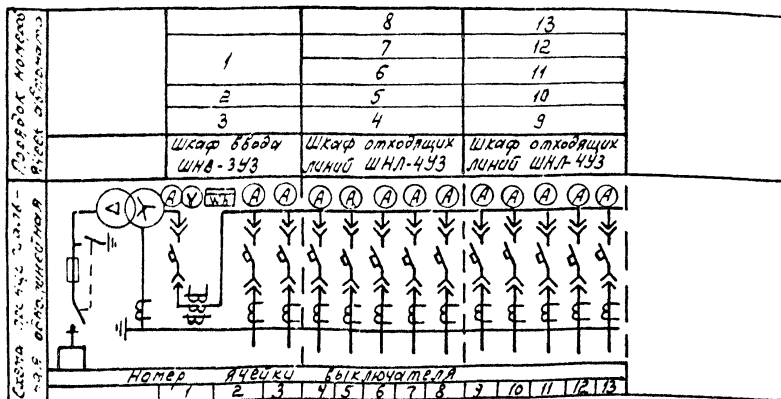 Порядок номеров ячеек автомата
8 13
1 7 12
6 11
2 5 10
3 4 9
Шкаф ввода Шкаф отходящих Шкаф отходящих
ШНВ-3У3 линий ШНЛ-4У3 линий ШНЛ-4У3
Схема
однолинейная
A V A A A A A A A A A A A A
Номер ячейки выключателя
1 2 3 4 5 6 7 8 9 10 11 12 13